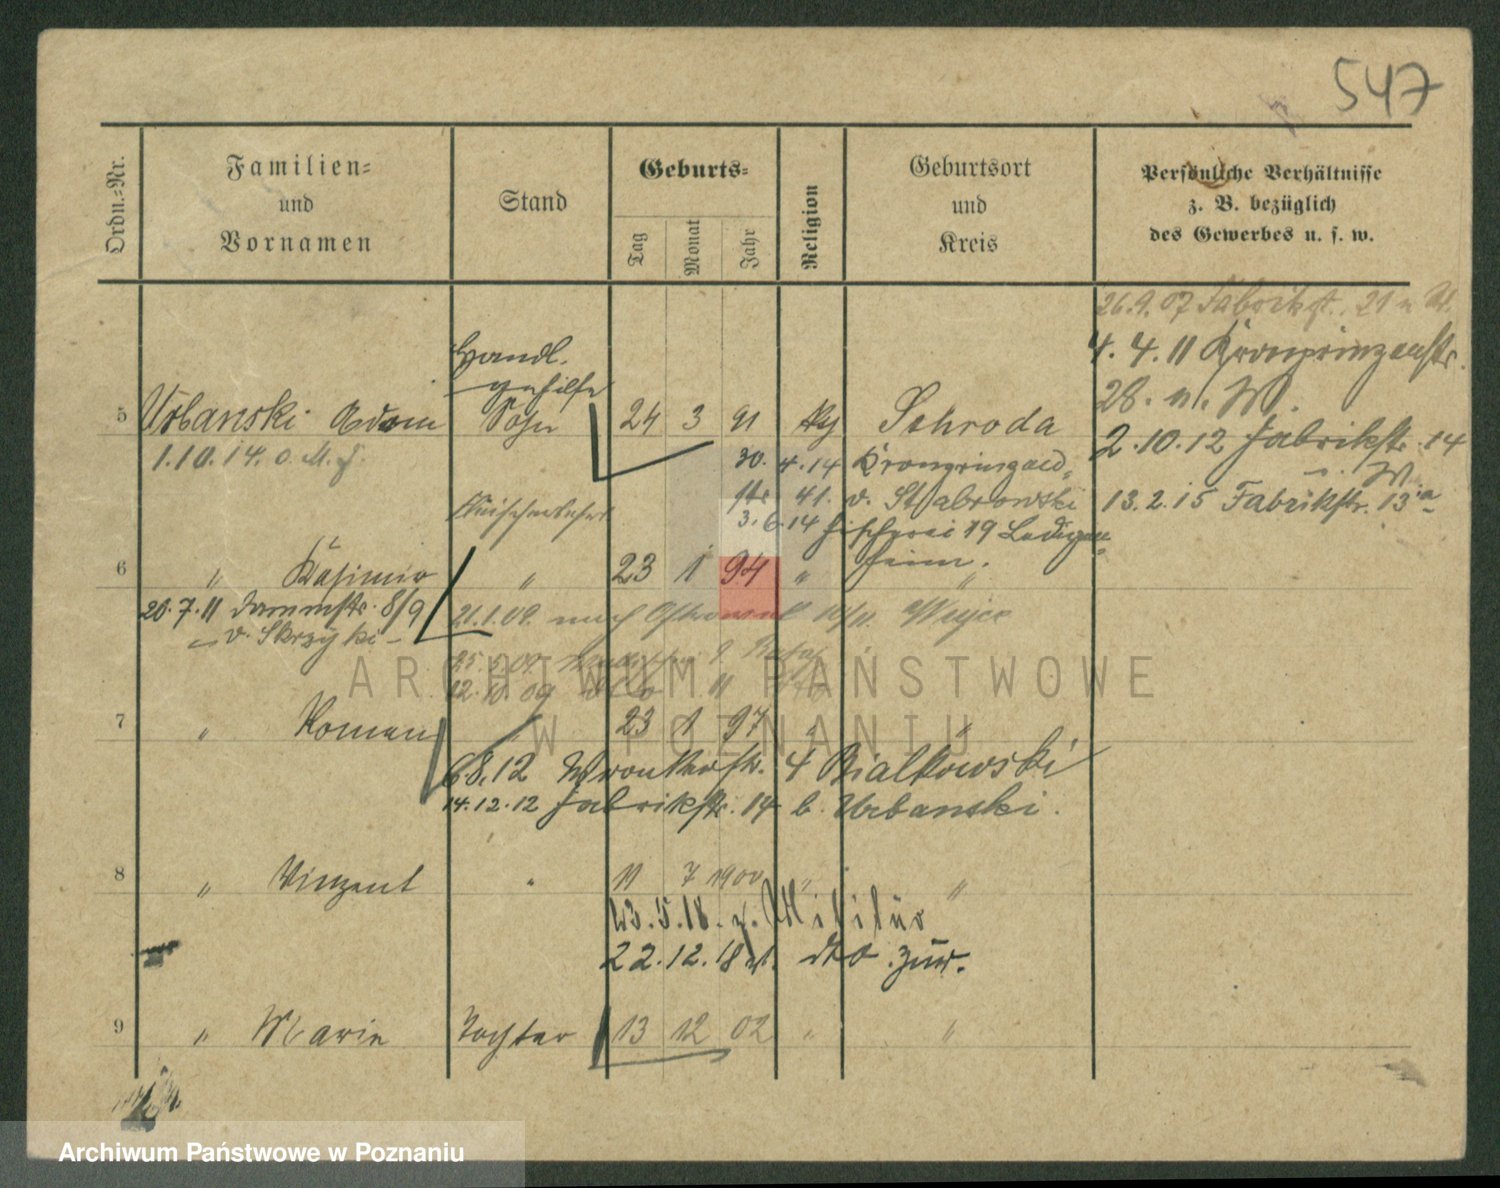 547
Ordn.-Nr.
Familien-
und
Vornamen
Stand
Geburts-
Tag
Monat
Jahr
Religion
Geburtsort
und
Kreis
Persönliche Verhältnisse
z. B. bezüglich
des Gewerbes u. s. w.
26.9.07 Fabrikst. 21
4.4.11 Kronprinzenstr.
28. n. W.
Handl.
gehilfe
5 Urbanski Adam Sohn 24 3 91 Schroda
2.10.12 Fabrikstr. 14
1.10.14.
30. 4.14 Kronprinzen-
str. 41. v. Stabrowski
13.2.15 Fabrikstr. 13a
3.6.14 Fischerei 19 Ledigen-
heim.
6 " Kasimir " 23 1 94 " "
20.7.11 Dammstr. 8/9
v. Skrzypki
21.1.09. nach
12.10.09
7 " Roman " 23 1 97 " "
6.8.12 Wronkerstr. 4 Bialkowski
14.12.12 Fabrikstr. 14 b. Urbanski.
8 " Vinzent " 11 7 1900 " "
23.5.18. z. Militär
22.12.18 dto zur.
9 " Marie Tochter 13 12 02 " "
ARCHIWUM PAŃSTWOWE
W POZNANIU
Archiwum Państwowe w Poznaniu